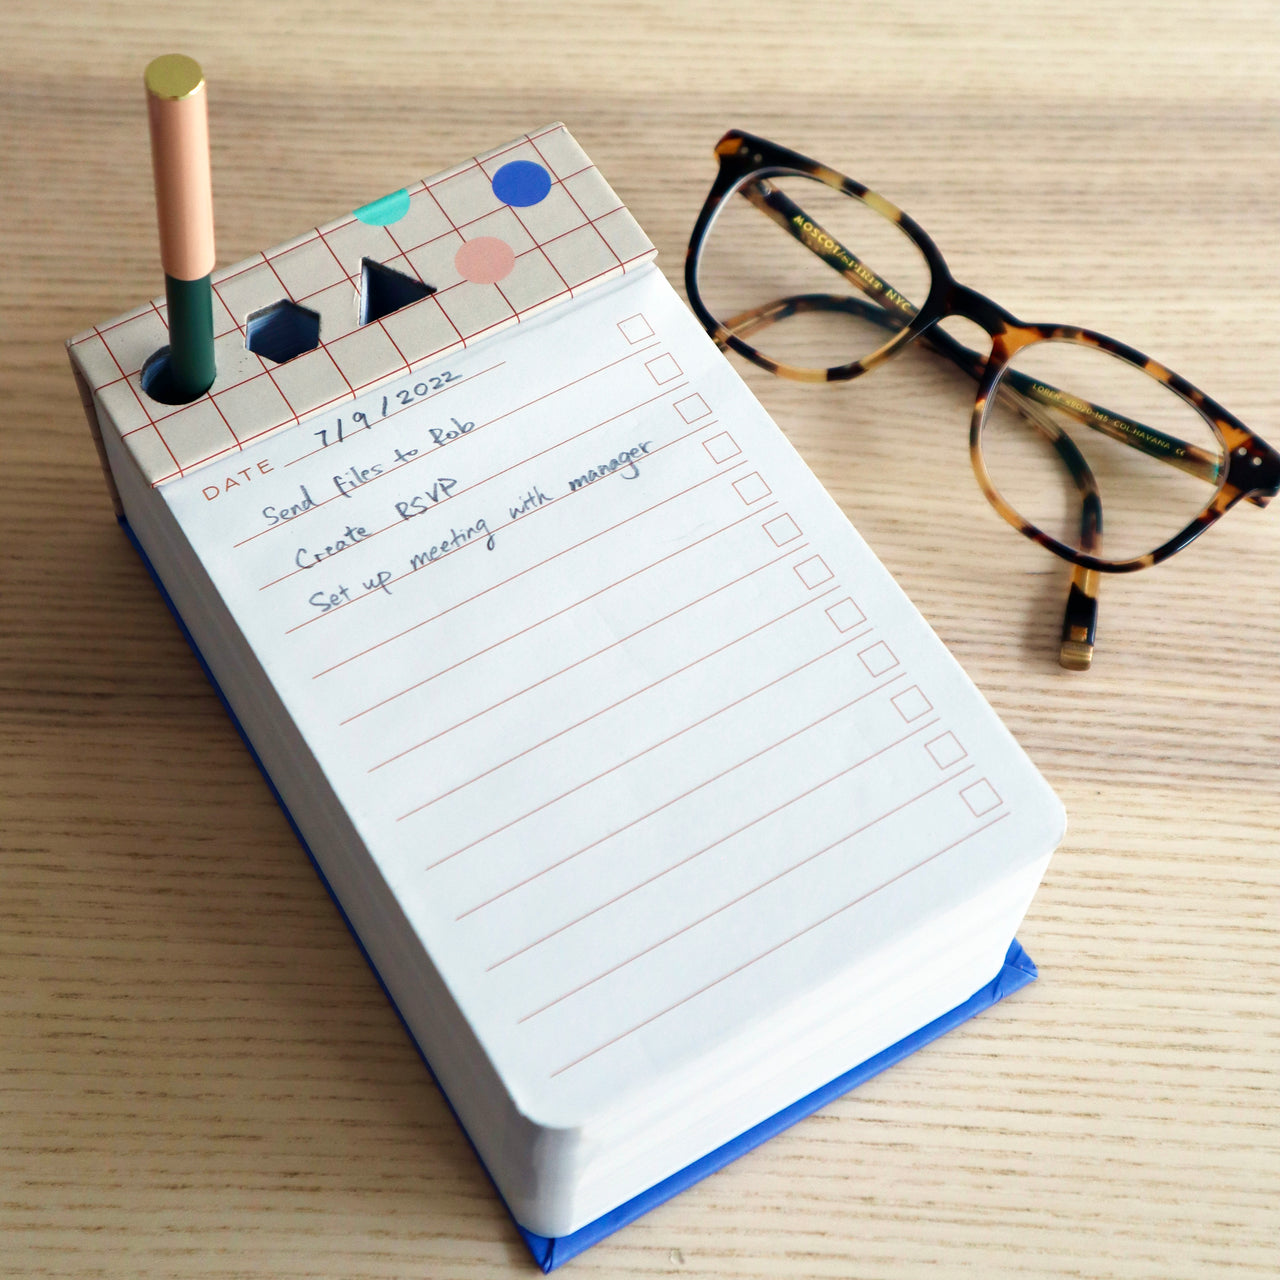 DATE 7/9/2022
Send files to Rob
Create RSVP
Set up meeting with manager
MOSCOT/SPIRIT NYC
COL.HAVANA CE